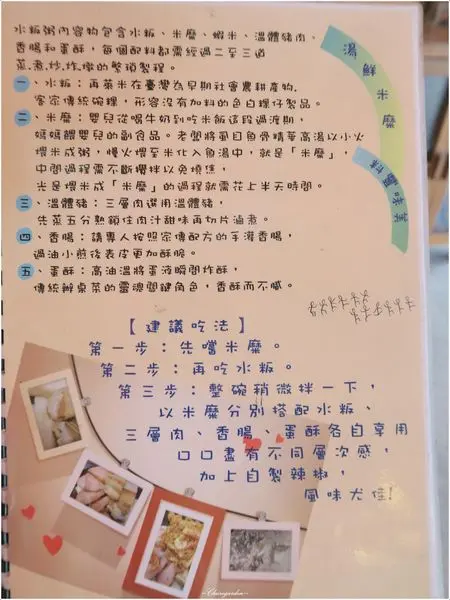 水粄粥內容物包含水粄、米糜、蝦米、溫體豬肉、
香腸和蛋酥,每個配料都需經過二至三道
蒸.煮.炒.炸.燉的繁瑣製程。
一、水粄:再萊米在臺灣為早期社會農耕產物.
客家傳統碗粿,形容沒有加料的色白粿仔製品。
二、米糜:嬰兒從喝牛奶到吃米飯這段過渡期,
媽媽餵嬰兒的副食品。老闆將虱目魚骨精華高湯以小火
煨米成粥,慢火煨至米化入魚湯中,就是「米糜」,
中間過程需不斷攪拌以免燒焦,
光是煨米成「米糜」的過程就需花上半天時間。
三、溫體豬:三層肉選用溫體豬,
先蒸五分熟鎖住肉汁甜味再切片滷煮。
四、香腸:請專人按照家傳配方的手灌香腸,
過油小煎後表皮更加酥脆。
五、蛋酥:高油溫將蛋液瞬間炸酥,
傳統辦桌菜的靈魂關鍵角色,香酥而不膩。
湯鮮米糜
美味
【建議吃法】
第一步:先嚐米糜。
第二步:再吃水粄。
第三步:整碗稍微拌一下,
以米糜分別搭配水粄、
三層肉、香腸、蛋酥各自享用
口口盡有不同層次感,
加上自製辣椒,
風味尤佳!